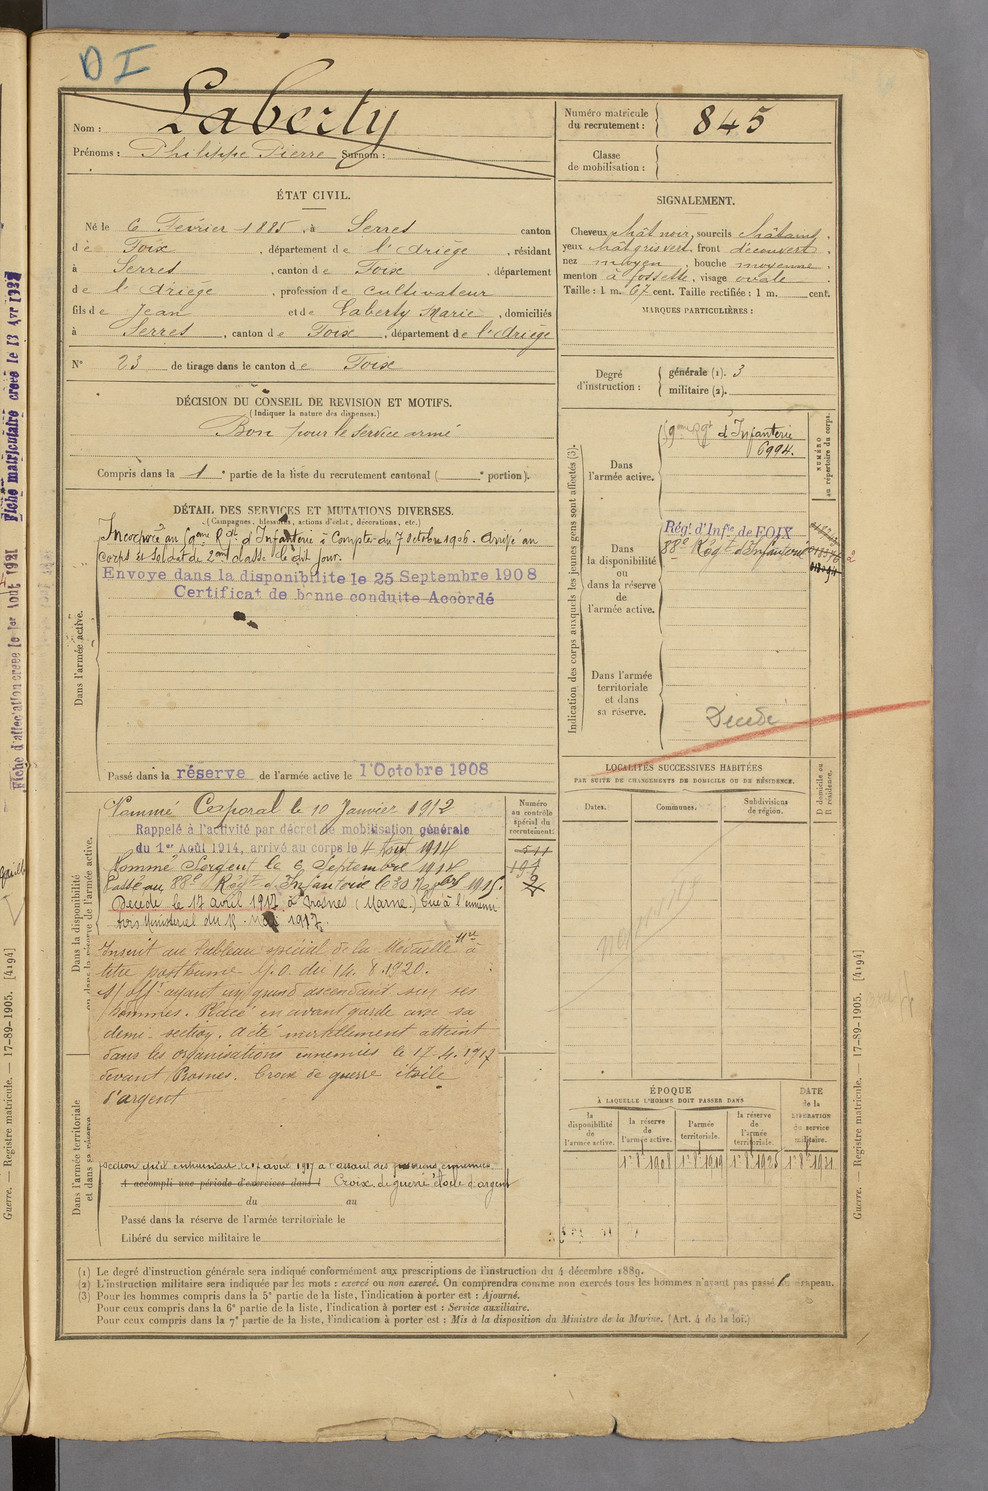 D I
Nom : Laberty
Prénoms : Philippe Pierre Surnom :
Numéro matricule
du recrutement : 845
Classe
de mobilisation :
ÉTAT CIVIL.
Né le 6 Février 1885, à Serres canton
de Foix, département de l'Ariège, résidant
à Serres, canton de Foix, département
de l'Ariège, profession de cultivateur
fils de Jean et de Laberty Marie, domiciliés
à Serres, canton de Foix, département de l'Ariège
N° 23 de tirage dans le canton de Foix
SIGNALEMENT.
Cheveux chât noir, sourcils châtains,
yeux chât gris vert, front découvert,
nez moyen, bouche moyenne,
menton à fossette, visage ovale.
Taille : 1 m. 67 cent. Taille rectifiée : 1 m. cent.
MARQUES PARTICULIÈRES :
Degré
d'instruction :
générale (1). 3
militaire (2).
DÉCISION DU CONSEIL DE REVISION ET MOTIFS.
(Indiquer la nature des dispenses.)
Bon pour le service armé
Compris dans la 1 e partie de la liste du recrutement cantonal ( e portion).
DÉTAIL DES SERVICES ET MUTATIONS DIVERSES.
(Campagnes, blessures, actions d'éclat, décorations, etc.)
Dans l'armée active.
Incorporé au 59eme Rgt d'Infanterie à Compter du 7 octobre 1906. Arrivé au
corps et soldat de 2eme classe le dit jour.
Envoye dans la disponibilite le 25 Septembre 1908
Certificat de bonne conduite Accordé
Passé dans la réserve de l'armée active le 1 Octobre 1908
Dans la disponibilité
ou dans la réserve de l'armée active.
Nommé Caporal le 10 Janvier 1912
Rappelé à l'activité par décret de mobilisation générale
du 1er Août 1914, arrivé au corps le 4 Aout 1914
Nommé Sergent le 6 Septembre 1914
Passé au 88e Régt d'Infanterie le 30 1915.
Décédé le 17 avril 1917 à Prosnes (Marne) Tué à l'ennemi
1917.
Inscrit au tableau spécial de la Médaille Mre à
titre posthume J.O. du 14. 8. 1920.
S/off ayant un grand ascendant sur ses
hommes. Placé en avant garde avec sa
demi-section. A été mortellement atteint
dans les organisations ennemies le 17-4-1917
devant Prosnes. Croix de guerre étoile
d'argent
Dans l'armée territoriale
et dans sa réserve
section qu'il entrainait le 17 avril 1917 à l'assaut des positions ennemies.
A accompli une période d'exercices dans l Croix de guerre étoile d'argent
du au
Passé dans la réserve de l'armée territoriale le
Libéré du service militaire le
Numéro
au contrôle
spécial du
recrutement.
Indication des corps auxquels les jeunes gens sont affectés (3).
NUMÉRO
au répertoire du corps.
Dans
l'armée active.
59eme Rgt d'Infanterie
6994.
Dans
la disponibilité
ou
dans la réserve
de
l'armée active.
Rég. d'Infie de FOIX
88e Régt d'Infanterie
Dans l'armée
territoriale
et dans
sa réserve.
Décédé
LOCALITÉS SUCCESSIVES HABITÉES
PAR SUITE DE CHANGEMENTS DE DOMICILE OU DE RÉSIDENCE.
D domicile ou
R résidence.
Dates.
Communes.
Subdivisions
de région.
ÉPOQUE
À LAQUELLE L'HOMME DOIT PASSER DANS
DATE
de la
LIBÉRATION
du service
militaire.
la
disponibilité
de
l'armée active.
la réserve
de
l'armée active.
l'armée
territoriale.
la réserve
de
l'armée
territoriale.
1er 8 1908 1er 8 1919 1er 8 1925 1er 8 1931
(1) Le degré d'instruction générale sera indiqué conformément aux prescriptions de l'instruction du 4 décembre 1889.
(2) L'instruction militaire sera indiquée par les mots : exercé ou non exercé. On comprendra comme non exercés tous les hommes n'ayant pas passé au drapeau.
(3) Pour les hommes compris dans la 5e partie de la liste, l'indication à porter est : Ajourné.
Pour ceux compris dans la 6e partie de la liste, l'indication à porter est : Service auxiliaire.
Pour ceux compris dans la 7e partie de la liste, l'indication à porter est : Mis à la disposition du Ministre de la Marine. (Art. 4 de la loi.)
Guerre. — Registre matricule. — 17-89-1905. [4194]
Guerre. — Registre matricule. — 17-89-1905. [4194]
Fiche matriculaire créée le 13 Avr
Fiche d'affectation créée le 1er Aout 1921